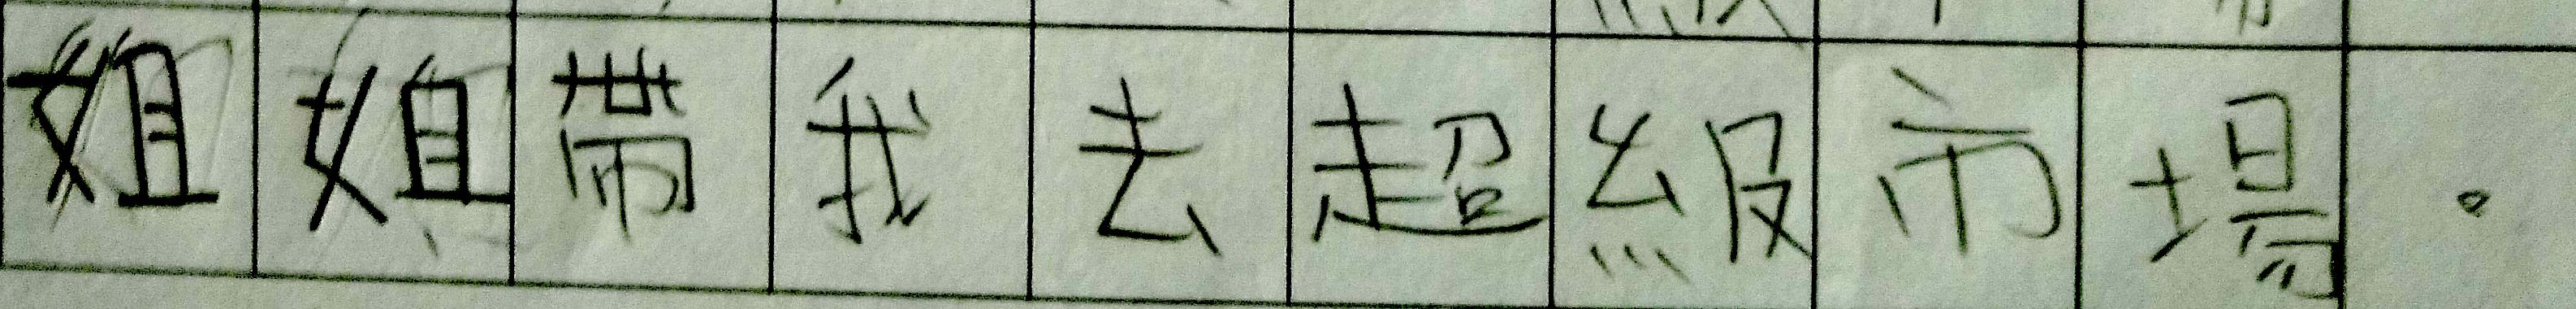 姐姐帶我去超級市場。